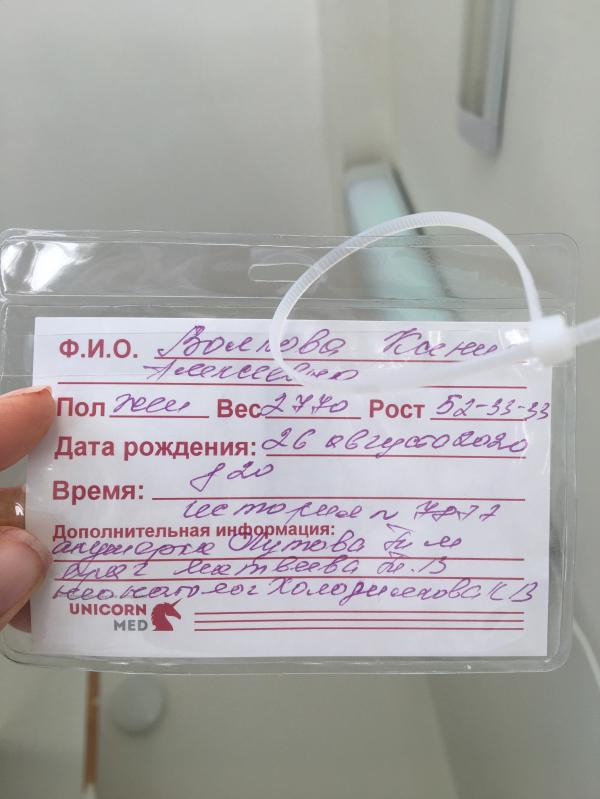 Ф.И.О. Волкова Ксени
Алексеевна
Пол жен Вес 2770 Рост 52-33-33
Дата рождения: 26 августа 2020
Время: 8 20
история n
Дополнительная информация:
акушерка Путова Т. М
врач Матвеева Т. В
неонатолог Холодилова К В
UNICORN
MED